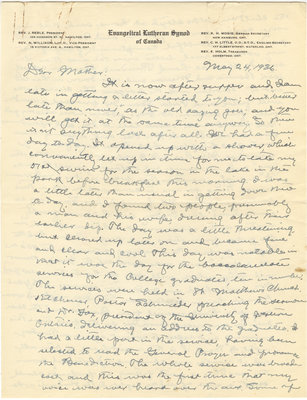 Evangelical Lutheran Synod
of Canada
REV. J. REBLE, PRESIDENT
REV. N. WILLISON, LIT. D., VICE-PRESIDENT
REV. H. N. MOSIG, GERMAN SECRETARY
REV. C. H. LITTLE, D.D., S.T.D., ENGLISH SECRETARY
REV. E. HOLM, TREASURER
May 24, 1936
Dear Mother:
It is now after supper and I am
late in getting a letter started to you, but better
late than never, as the old saying goes, and you
will get it at the same time anyway, so there
isn't anything lost after all. We had a fine
day to-day. It opened up with a shower, which
conveniently let up in time for me to take my
first swim for the season in the lake in the
park before breakfast. This morning I was
a little later than usual in getting over there
to-day, and I found two people, presumably
a man and his wife, driving after their
earlier dip. The day was a little threatening
but cleared up later on and became fine
and clear and cool. This day was notable in
that it was the day for the baccalaureate
services for the College graduates, in number.
The services were held in St. Matthews Church,
Kitchener, Pastor Schmieder preaching the sermon
and Dr. Fox, president of the University of Western
Ontario, delivering an address to the graduates. I
had a little part in the service, having been
selected to read the General Prayer and pronounce
the Benediction. The whole service was broad-
cast, and this was the first time that my
voice was ever heard over the air.